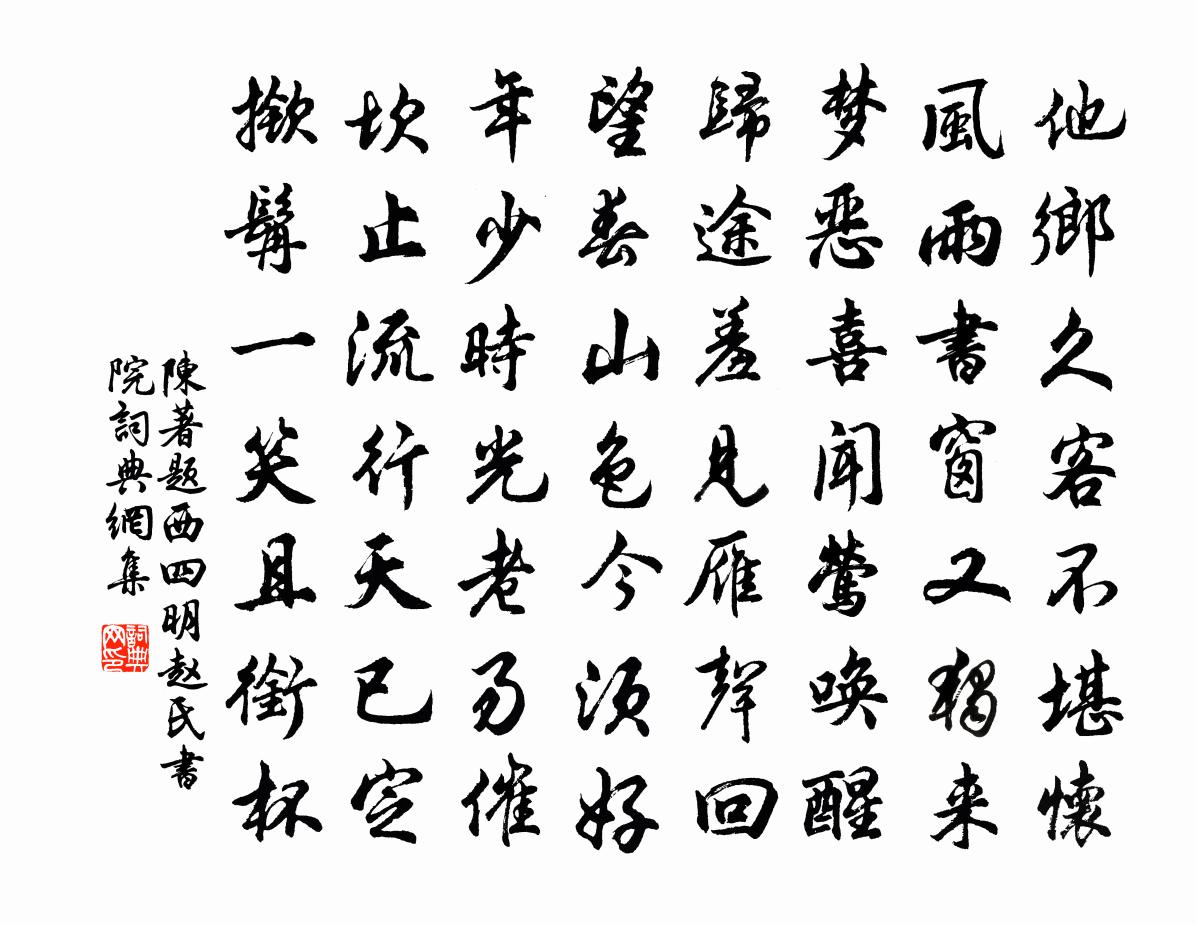 他鄉久客不堪懷
風雨書窗又獨来
梦恶喜聞鶯唤醒
歸途羞見雁聲回
望春山色今須好
年少時光老易催
坎止流行天已定
撚髯一笑且銜杯
陳著题西四明赵氏書
院詞典網集
詞典网印